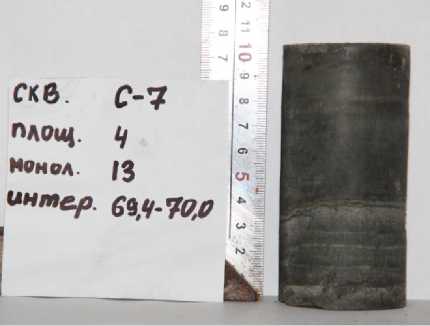 скв. С-7
площ. 4
монол. 13
интер. 69,4-70,0
12 11 10 9 8 7 6 5 4 3 2
9 8 7